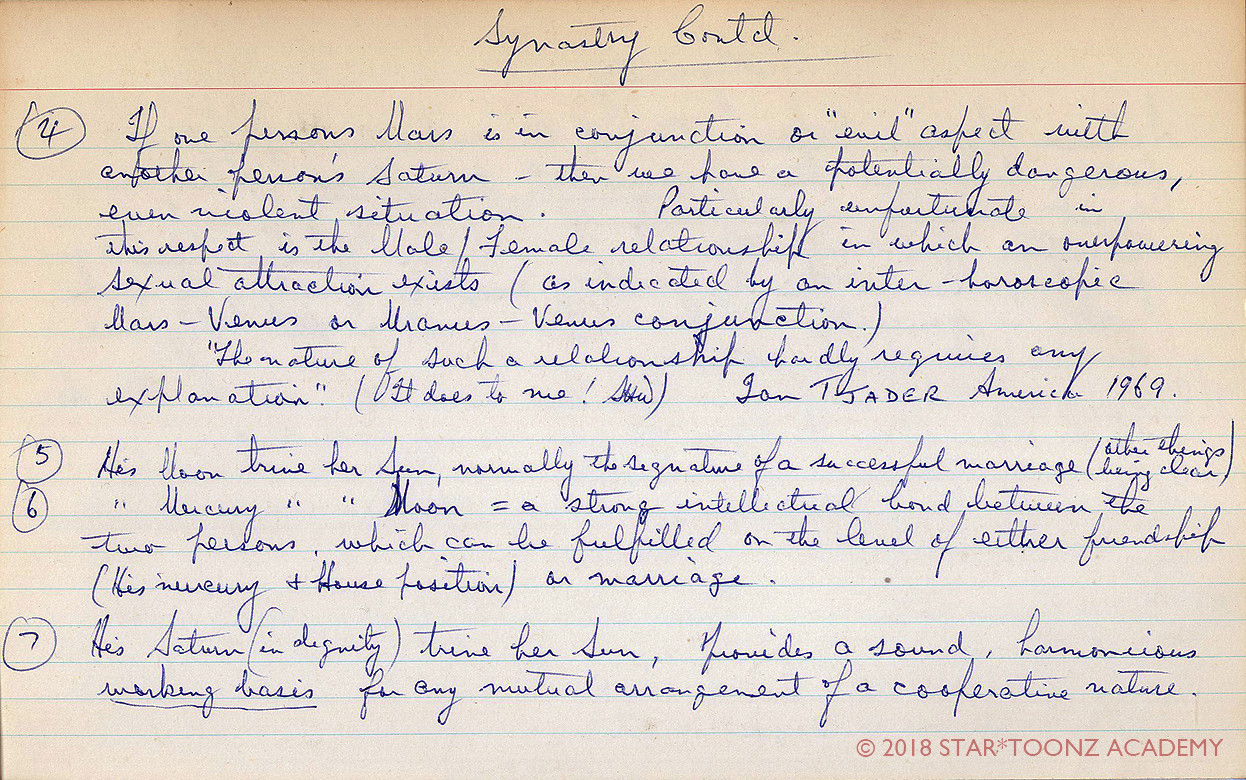 Synastry Contd.
4 If one persons Mars is in conjunction or "evil" aspect with
another person's Saturn - then we have a potentially dangerous,
even violent situation. Particularly unfortunate in
this respect is the Male/Female relationship in which an overpowering
sexual attraction exists (as indicated by an inter-horoscopic
Mars - Venus or Uranus - Venus conjunction.)
"The nature of such a relationship hardly requires any
explanation". (It does to me! ) Ian TJADER America 1969.
5 His Moon trine her Sun, normally the signature of a successful marriage (other things being clear)
6 " Mercury " " Moon = a strong intellectual bond between the
two persons, which can be fulfilled on the level of either friendship
(His mercury + House position) or marriage.
7 His Saturn (in dignity) trine her Sun, Provides a sound, harmonicious
working basis for any mutual arrangement of a cooperative nature.
© 2018 STAR*TOONZ ACADEMY